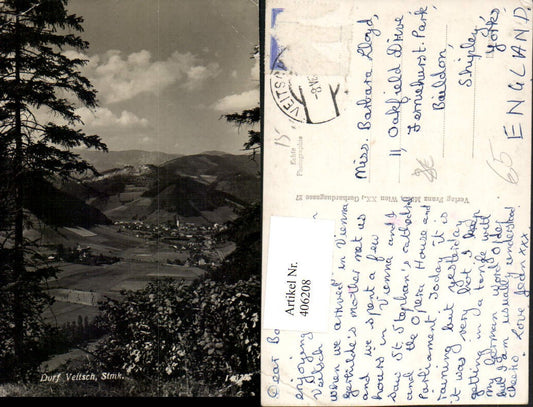 Dorf Veitsch, Stmk.
Artikel Nr.
406208
VEITSCH
Echte
Photographie
Verlag Franz Wien XX., Gerhardusgasse 25
Miss. Barbara Lloyd,
11, Oakfield Drive
Ferniehurst. Park,
Baildon
Shipley
Yorks.
ENGLAND.
65
Dear
enjoying
Veitsch
when we arrived in Vienna
Gertrude's mother met us
and we spent a few
hours in Vienna and I
saw St. Stephan's cathedral
and the Opera House and
Parliament. Today it is
raining but yesterday
it was very hot. I keep
getting in a tangle with
my German word order
but I am usually understood
cheerio! Love Jean xxx